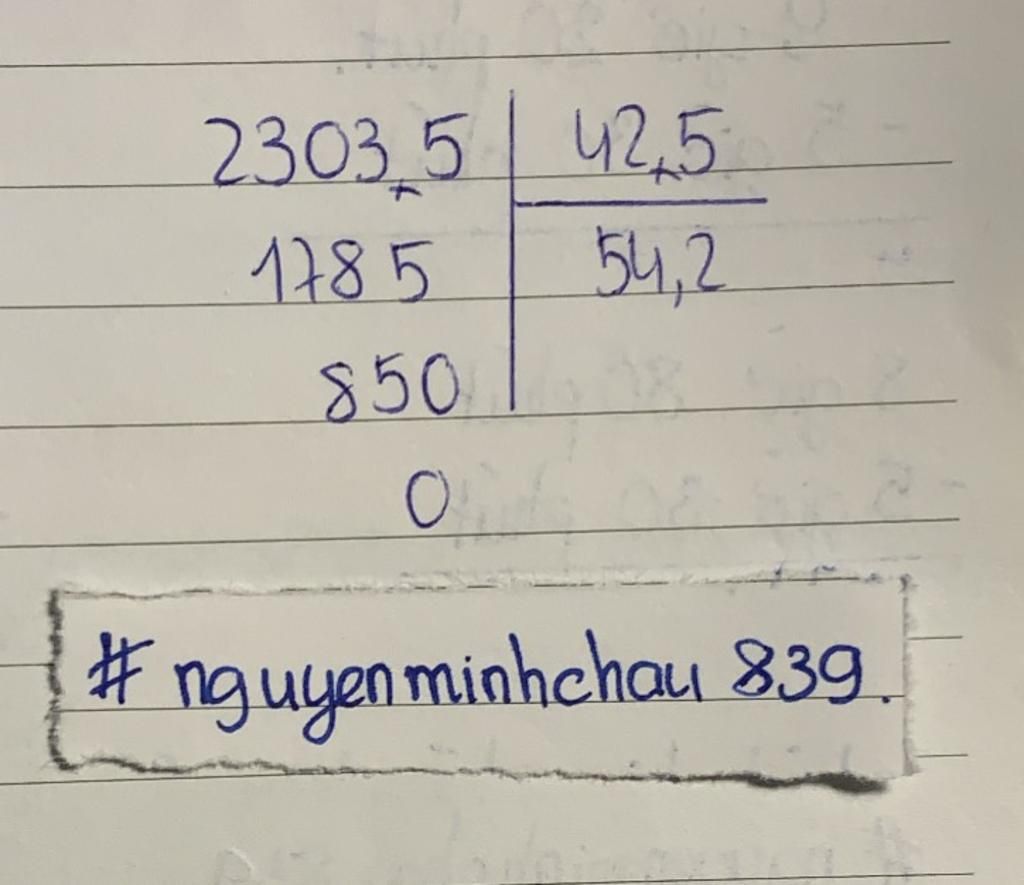 2303,5 42,5
1785 54,2
850
0
# nguyenminhchau 839.